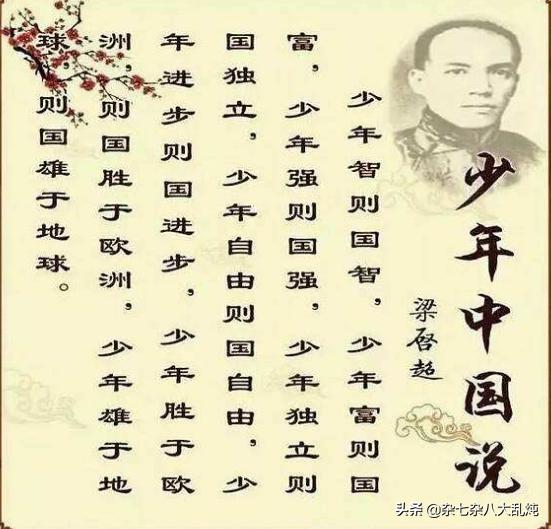 少年中国说
梁启超
少年智则国智，少年富则国
富，少年强则国强，少年独立则
国独立，少年自由则国自由，少
年进步则国进步，少年胜于欧
洲，则国胜于欧洲，少年雄于地
球，则国雄于地球。
头条 @杂七杂八大乱炖